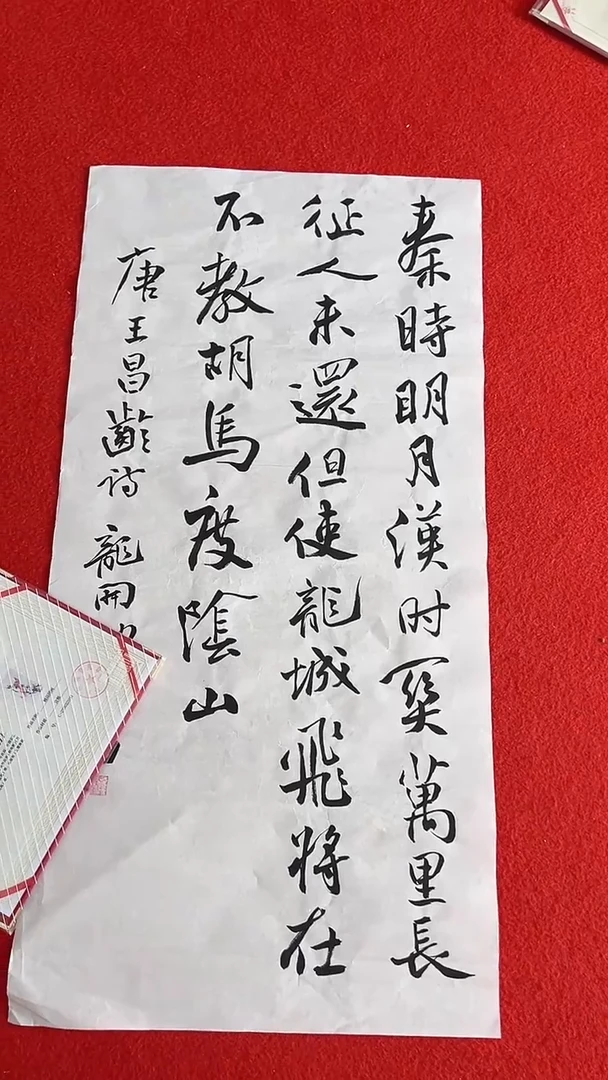 秦時明月漢时関萬里長
征人未還但使龍城飛將在
不教胡馬度陰山
唐王昌齡诗 龍開